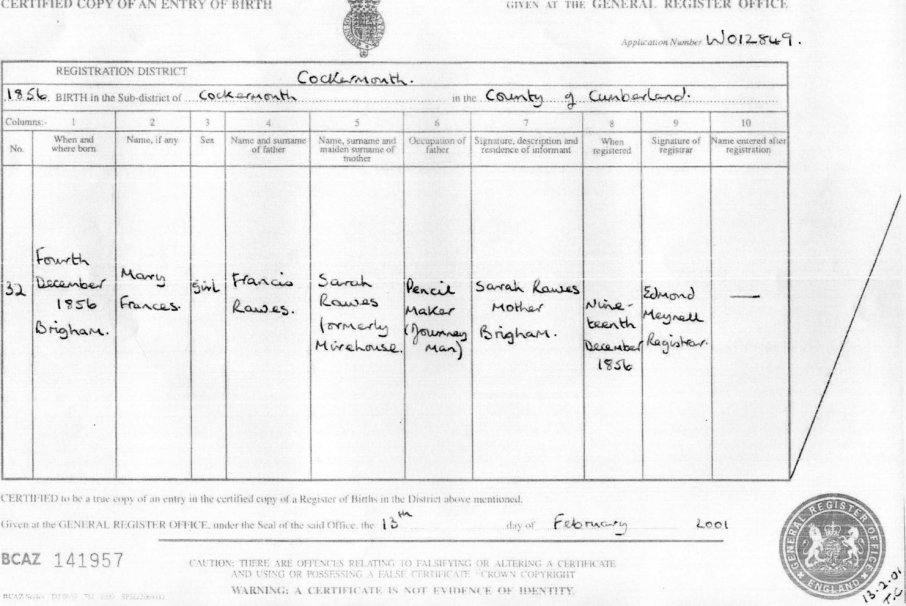 CERTIFIED COPY OF AN ENTRY OF BIRTH
GIVEN AT THE GENERAL REGISTER OFFICE
Application Number W012849.
REGISTRATION DISTRICT Cockermouth.
1856. BIRTH in the Sub-district of Cockermouth in the County of Cumberland.
Columns:- 1 2 3 4 5 6 7 8 9 10
No.
When and where born
Name, if any
Sex
Name and surname of father
Name, surname and maiden surname of mother
Occupation of father
Signature, description and residence of informant
When registered
Signature of registrar
Name entered after registration
32
Fourth
December
1856
Brigham.
Mary
Frances.
Girl
Francis
Rawes.
Sarah
Rawes
formerly
Mirehouse.
Pencil
Maker
(Journey
man)
Sarah Rawes
Mother
Brigham.
Nine-
teenth
December
1856
Edmond
Meynell
Registrar.
—
CERTIFIED to be a true copy of an entry in the certified copy of a Register of Births in the District above mentioned.
Given at the GENERAL REGISTER OFFICE, under the Seal of the said Office, the 13th day of February 2001
BCAZ 141957
CAUTION: THERE ARE OFFENCES RELATING TO FALSIFYING OR ALTERING A CERTIFICATE
AND USING OR POSSESSING A FALSE CERTIFICATE CROWN COPYRIGHT
WARNING: A CERTIFICATE IS NOT EVIDENCE OF IDENTITY.
GENERAL REGISTER OFFICE
ENGLAND
13.2.01
T.C